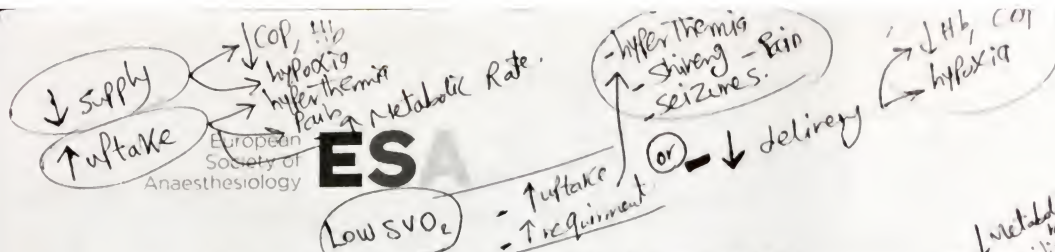 ↓ supply
↓ COP, Hb
hypoxia
↑ uptake
hyperthermia
Pain
↑ Metabolic Rate.
European
Society of
Anaesthesiology
ESA
Low SVO₂
- ↑ uptake
- ↑ requirment
- hyperThermia
- Shivreng - Pain
- seizures.
or - ↓ delivery
↓ Hb, COP
hypoxia
↓ Metabol